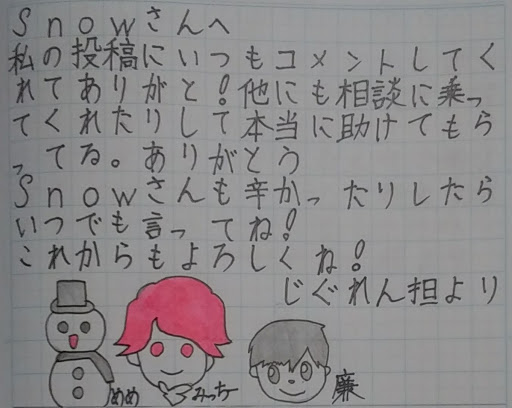 Snowさんへ
私の投稿にいつもコメントしてく
れてありがと!他にも相談に乗っ
てくれたりして本当に助けてもら
ってる。ありがとう
Snowさんも辛かったりしたら
いつでも言ってね!
これからもよろしくね!
じぐれん担より
めめ
みっちー
廉